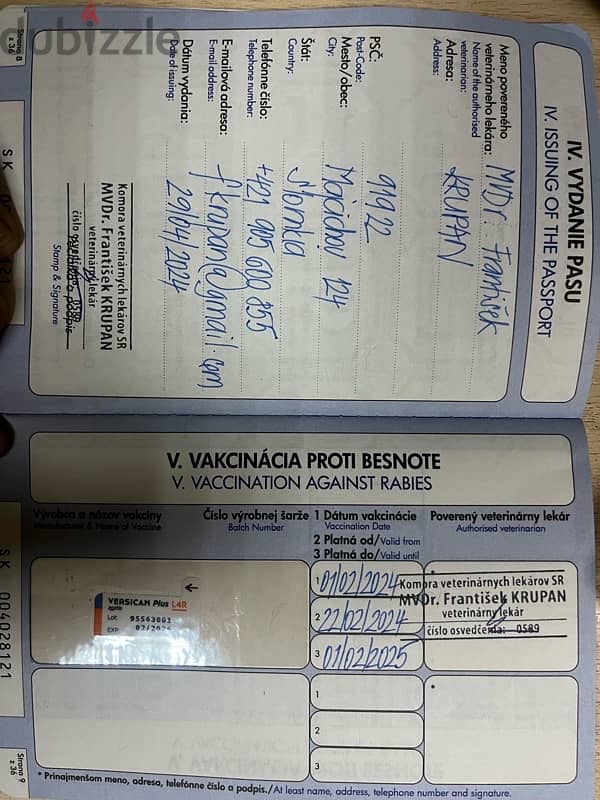 dubizzle
Strana 8
z 36
IV. VYDANIE PASU
IV. ISSUING OF THE PASSPORT
Meno povereného
veterinárneho lekára: MVDr. František
Name of the authorised
veterinarian:
Adresa: KRUPAN
Address:
PSČ: 919 22
Post-Code:
Mesto/obec: Majcichov 124
City:
Štát:
Country:
Telefónne číslo: +421 905 600 855
Telephone number:
E-mailová adresa: fkrupan@gmail.com
E-mail address:
Dátum vydania: 29/04/2024
Date of issuing:
Komora veterinárnych lekárov SR
MVDr. František KRUPAN
veterinárny lekár
číslo osvedčenia: 0589
Stamp & Signature
SK
121
V. VAKCINÁCIA PROTI BESNOTE
V. VACCINATION AGAINST RABIES
Výrobca a názov vakcíny
Manufacturer & Name of Vaccine
Číslo výrobnej šarže
Batch Number
1 Dátum vakcinácie
Vaccination Date
2 Platná od/Valid from
3 Platná do/Valid until
Poverený veterinárny lekár
Authorised veterinarian
VERSICAN Plus L4R
Lot: 95563001
EXP:
1 01/02/2024
2 22/02/2024
3 01/02/2025
*
Komora veterinárnych lekárov SR
MVDr. František KRUPAN
veterinárny lekár
číslo osvedčenia: 0589
1
2
3
*
* Prinajmenšom meno, adresa, telefónne číslo a podpis./At least name, address, telephone number and signature.
SK 004028121
Strana 9
z 36